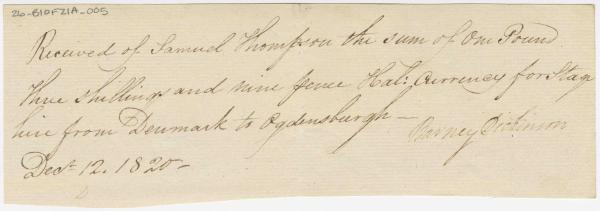 26-B10F21A-005
Received of Samuel Thompson the sum of One Pound
three shillings and nine pence Hal: Currency for Stage
hire from Denmark to Ogdensburgh —
Barney Dickinson
Decr 12. 1820 —